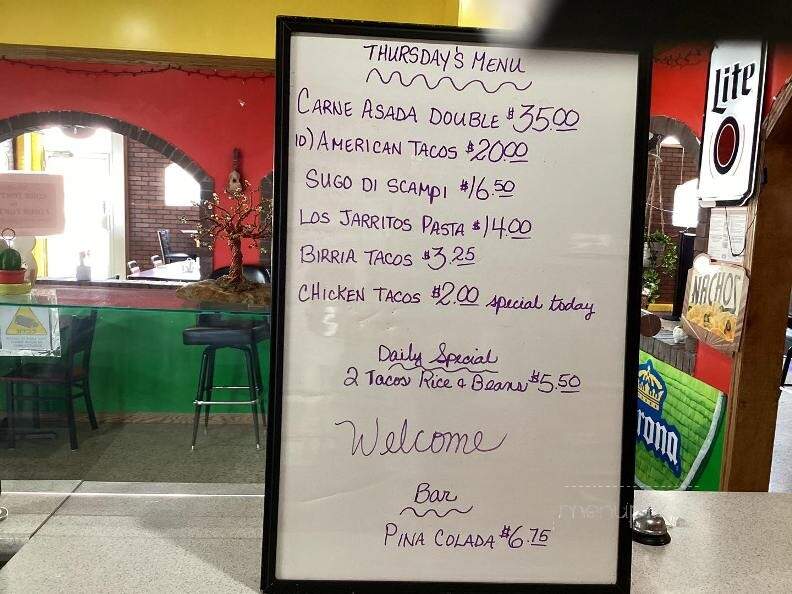 THURSDAY'S MENU
CARNE ASADA DOUBLE $35.00
10) AMERICAN TACOS $20.00
SUGO DI SCAMPI $16.50
LOS JARRITOS PASTA $14.00
BIRRIA TACOS $3.25
CHICKEN TACOS $2.00 special today
Daily Special
2 Tacos Rice & Beans $5.50
Welcome
Bar
PINA COLADA $6.75
Lite
NACHOS
rona